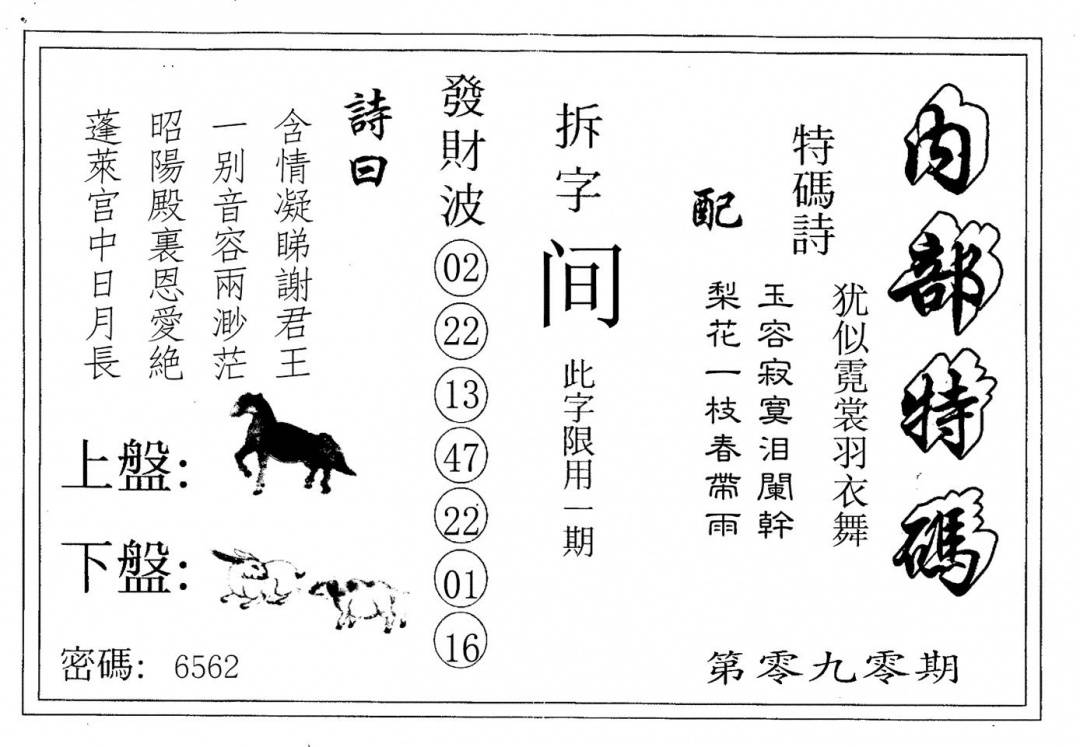 內部特碼
第零九零期
特碼詩
犹似霓裳羽衣舞
配
玉容寂寞泪闌幹
梨花一枝春帶雨
拆字
间
此字限用一期
發財波
02
22
13
47
22
01
16
詩曰
含情凝睇謝君王
一别音容兩渺茫
昭陽殿裏恩愛絶
蓬萊宫中日月長
上盤:
下盤:
密碼: 6562